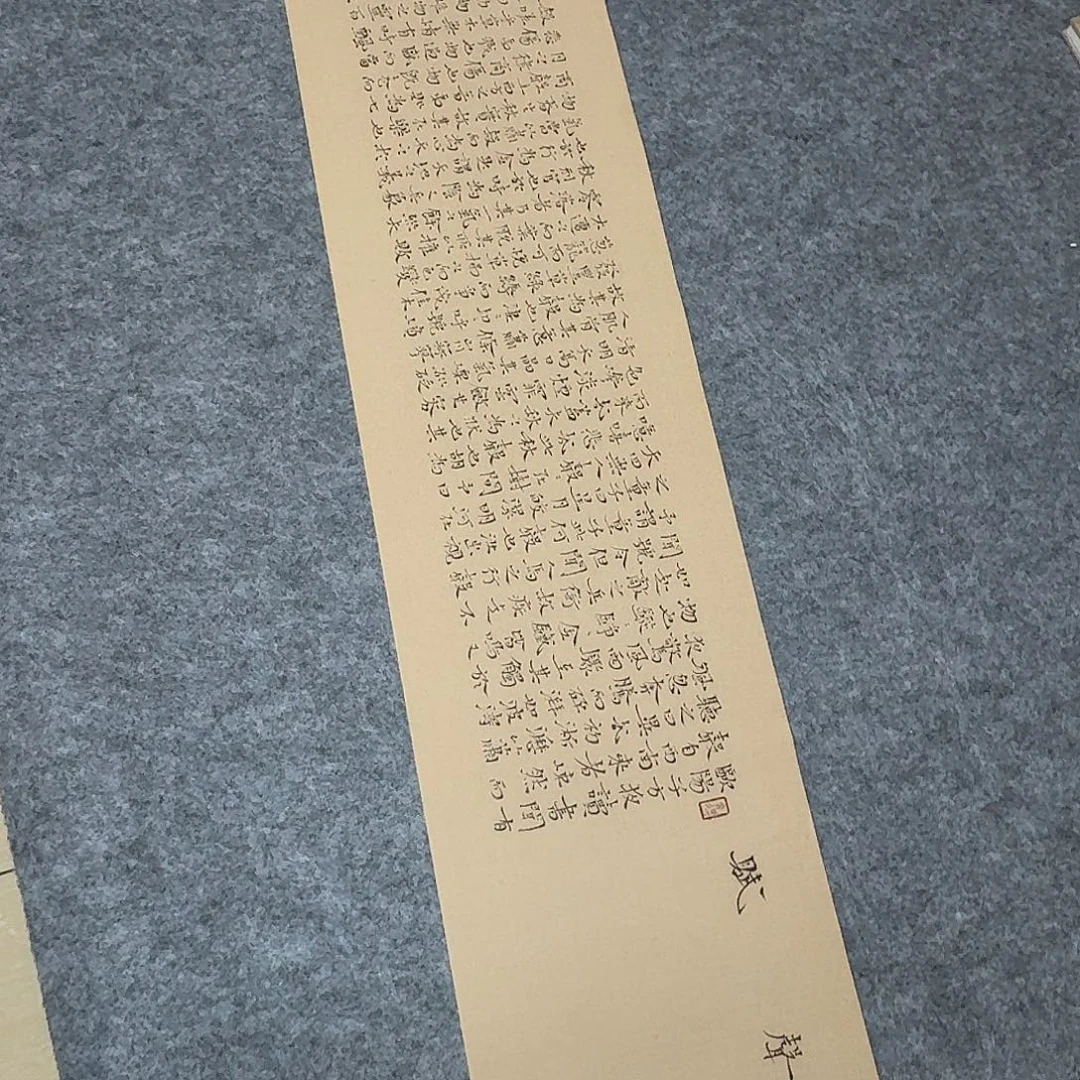 聲
賦
歐陽子方夜讀書聞有
聲自西南來者悚然而
聽之曰異哉初淅瀝以瀟
颯忽奔騰而砰湃如波濤
夜驚風雨驟至其觸於
物也鏦鏦錚錚金鐵皆鳴又
如赴敵之兵銜枚疾走不
聞號令但聞人馬之行聲
予謂童子此何聲也汝出視
之童子曰星月皎潔明河在
天四無人聲聲在樹間予曰
噫嘻悲哉此秋聲也胡為
而來哉蓋夫秋之為狀也其
色慘淡煙霏雲斂其容
清明天高日晶其氣慄冽砭
人肌骨其意蕭條山川寂寥
故其為聲也淒淒切切呼號奮
發豐草綠縟而爭茂佳木
蔥蘢而可悅草拂之而色變
木遭之而葉脫其所以摧敗
零落者乃其一氣之餘烈夫
秋刑官也於時為陰又兵象
也於行為金是謂天地之義
氣常以肅殺而為心天之於
物春生秋實故其在樂也
商聲主西方之音夷則為七